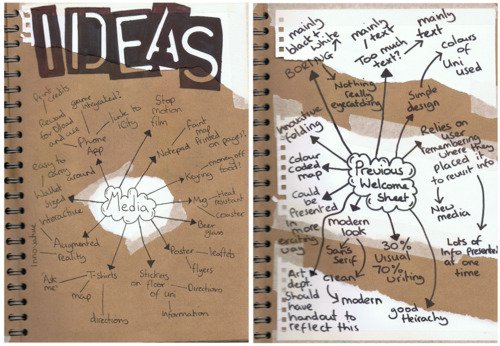 IDEAS
Print
credits
game
integrated?
Reward
for
and use
link to
iCity
Phone
App
Stop
motion
film
Faint
map
Printed
on pages?
Notepad
easy to
carry
around
Wallet
sized
interactive
innovative
Augmented
reality
Media
Keyring
money off
food?
Mug
Heat
resistant
coaster
Beer
glass
Poster
leaflets
flyers
Stickers
on floor
of uni
Directions
Information
T-Shirts
"Ask
me"
map
directions
mainly
black +
white
BORING
Nothing
really
eyecatching
mainly
text
Too much
text?
mainly
text
colours
of
Uni used
Simple
design
innovative
folding
colour
coded
map
Could
be
Presented
in more
way
Previous
Welcome
Sheet
Relies on user
remembering
where they
placed it
to revisit info
New
media
Lots of
Info Presented
at one
time
modern
look
Sans
Serif
clean
modern
Art
dept.
Should
have
handout to
reflect this
30%
Visual
70%
Writing
good
Heirachy